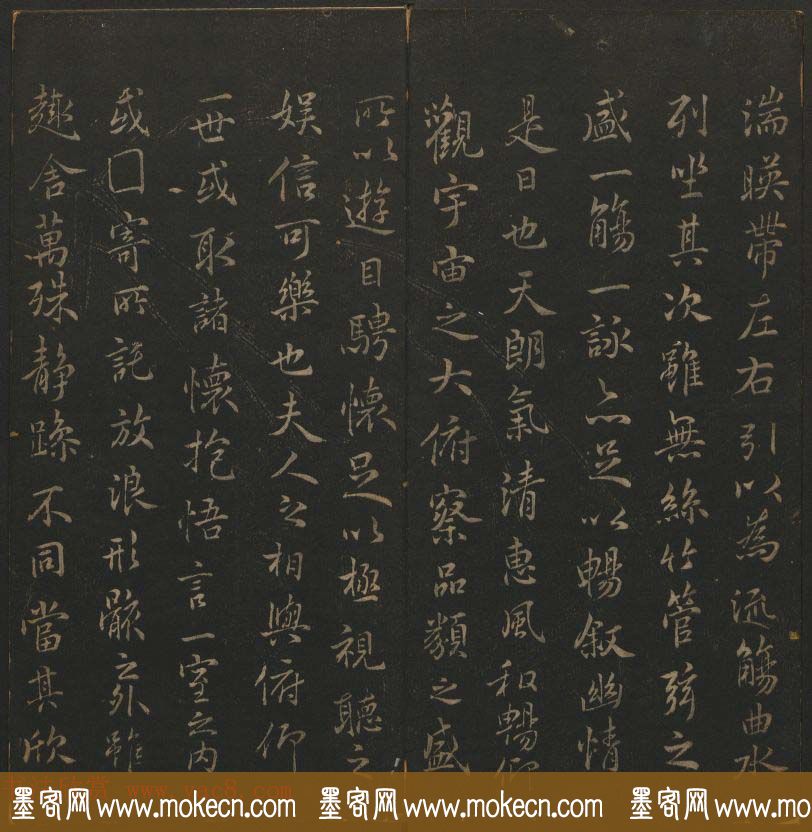 湍暎帶左右引以為流觴曲水
列坐其次雖無絲竹管弦之
盛一觴一詠亦足以暢敘幽情
是日也天朗氣清惠風和暢仰
觀宇宙之大俯察品類之盛
所以遊目騁懷足以極視聽之
娛信可樂也夫人之相與俯仰
一世或取諸懷抱悟言一室之內
或囗寄所託放浪形骸之外雖
趣舍萬殊静躁不同當其欣
書法欣賞 www.yac8.com
墨客网 www.mokecn.com 墨客网 www.mokecn.com 墨客网